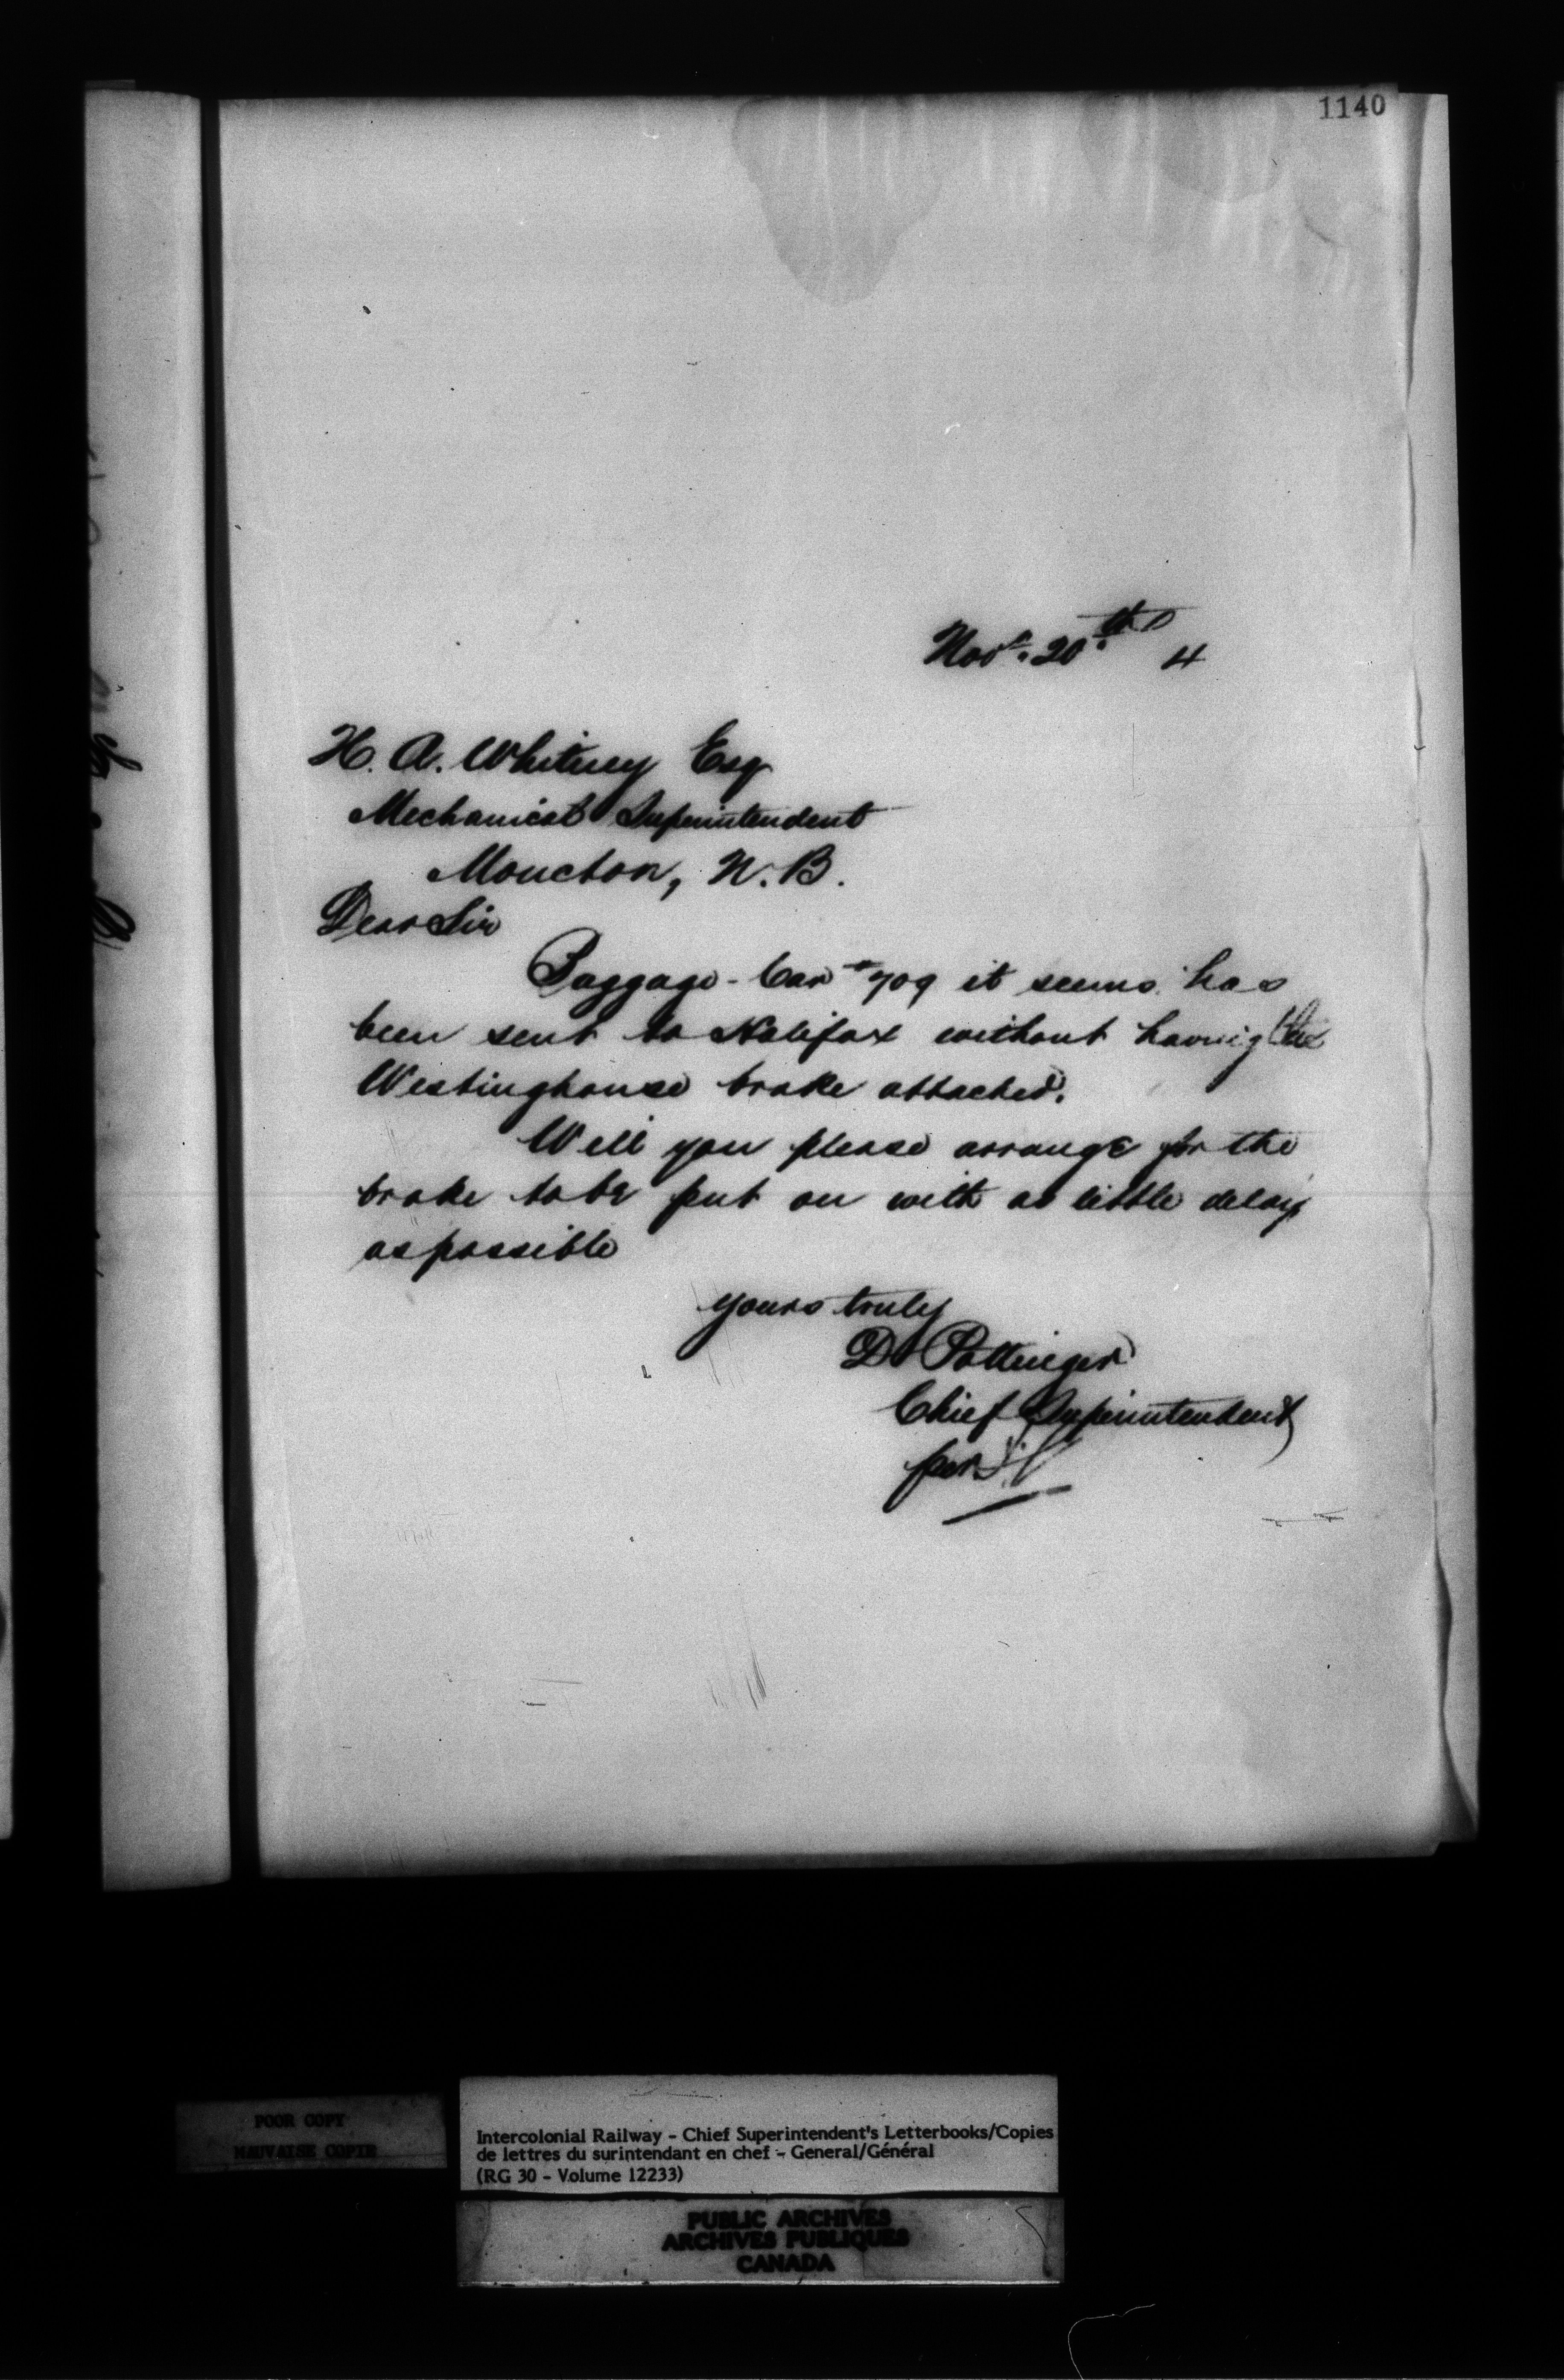 1140
Nov. 20th 4
H. A. Whitney Esq
Mechanical Superintendent
Moncton, N. B.
Dear Sir
Baggage-Car #709 it seems has
been sent to Halifax without having the
Westinghouse brake attached.
Will you please arrange for the
brake to be put on with as little delay
as possible
yours truly
D Pottinger
Chief Superintendent
per
POOR COPY
MAUVAISE COPIE
Intercolonial Railway - Chief Superintendent's Letterbooks/Copies
de lettres du surintendant en chef - General/Général
(RG 30 - Volume 12233)
PUBLIC ARCHIVES
ARCHIVES PUBLIQUES
CANADA